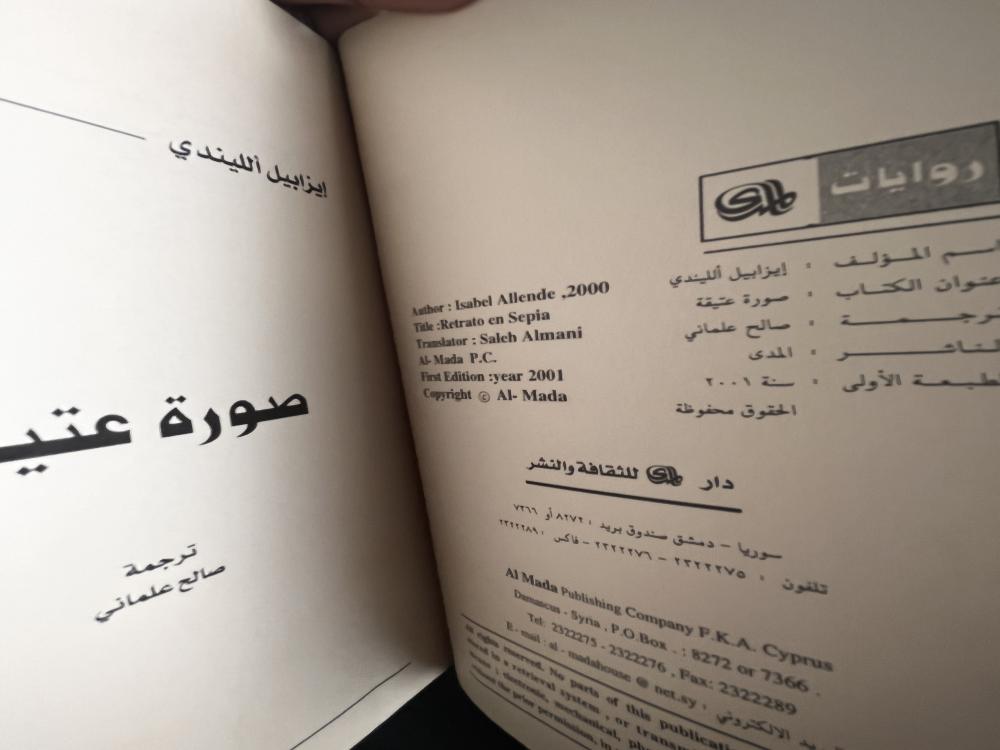 إيزابيل ألليندي
صورة
ترجمة
صالح علماني
روايات
المدى
المـؤلـف : إيزابيل ألليندي
عنوان الكتاب : صورة عتيقة
: صالح علماني
: المدى
الأولى : سنة ٢٠٠١
الحقوق محفوظة
Author : Isabel Allende ,2000
Title :Retrato en Sepia
Translator : Saleh Almani
Al- Mada P.C.
First Edition :year 2001
Copyright © Al- Mada
دار المدى للثقافة والنشر
سوريا – دمشق صندوق بريد : ٨٢٧٢ أو ٧٣٦٦
تلفون : ٢٣٢٢٢٧٥ – ٢٣٢٢٢٧٦ – فاكس : ٢٣٢٢٢٨٩
Al Mada Publishing Company F.K.A. Cyprus
Damascus - Syria , P.O.Box . : 8272 or 7366 .
Tel: 2322275 - 2322276 , Fax: 2322289
E - mail : al - madahouse @ net.sy : الالكتروني
All rights reserved. No parts of this
stored in a retrieval system , or
electronic, mechanical,
without the prior permission, in